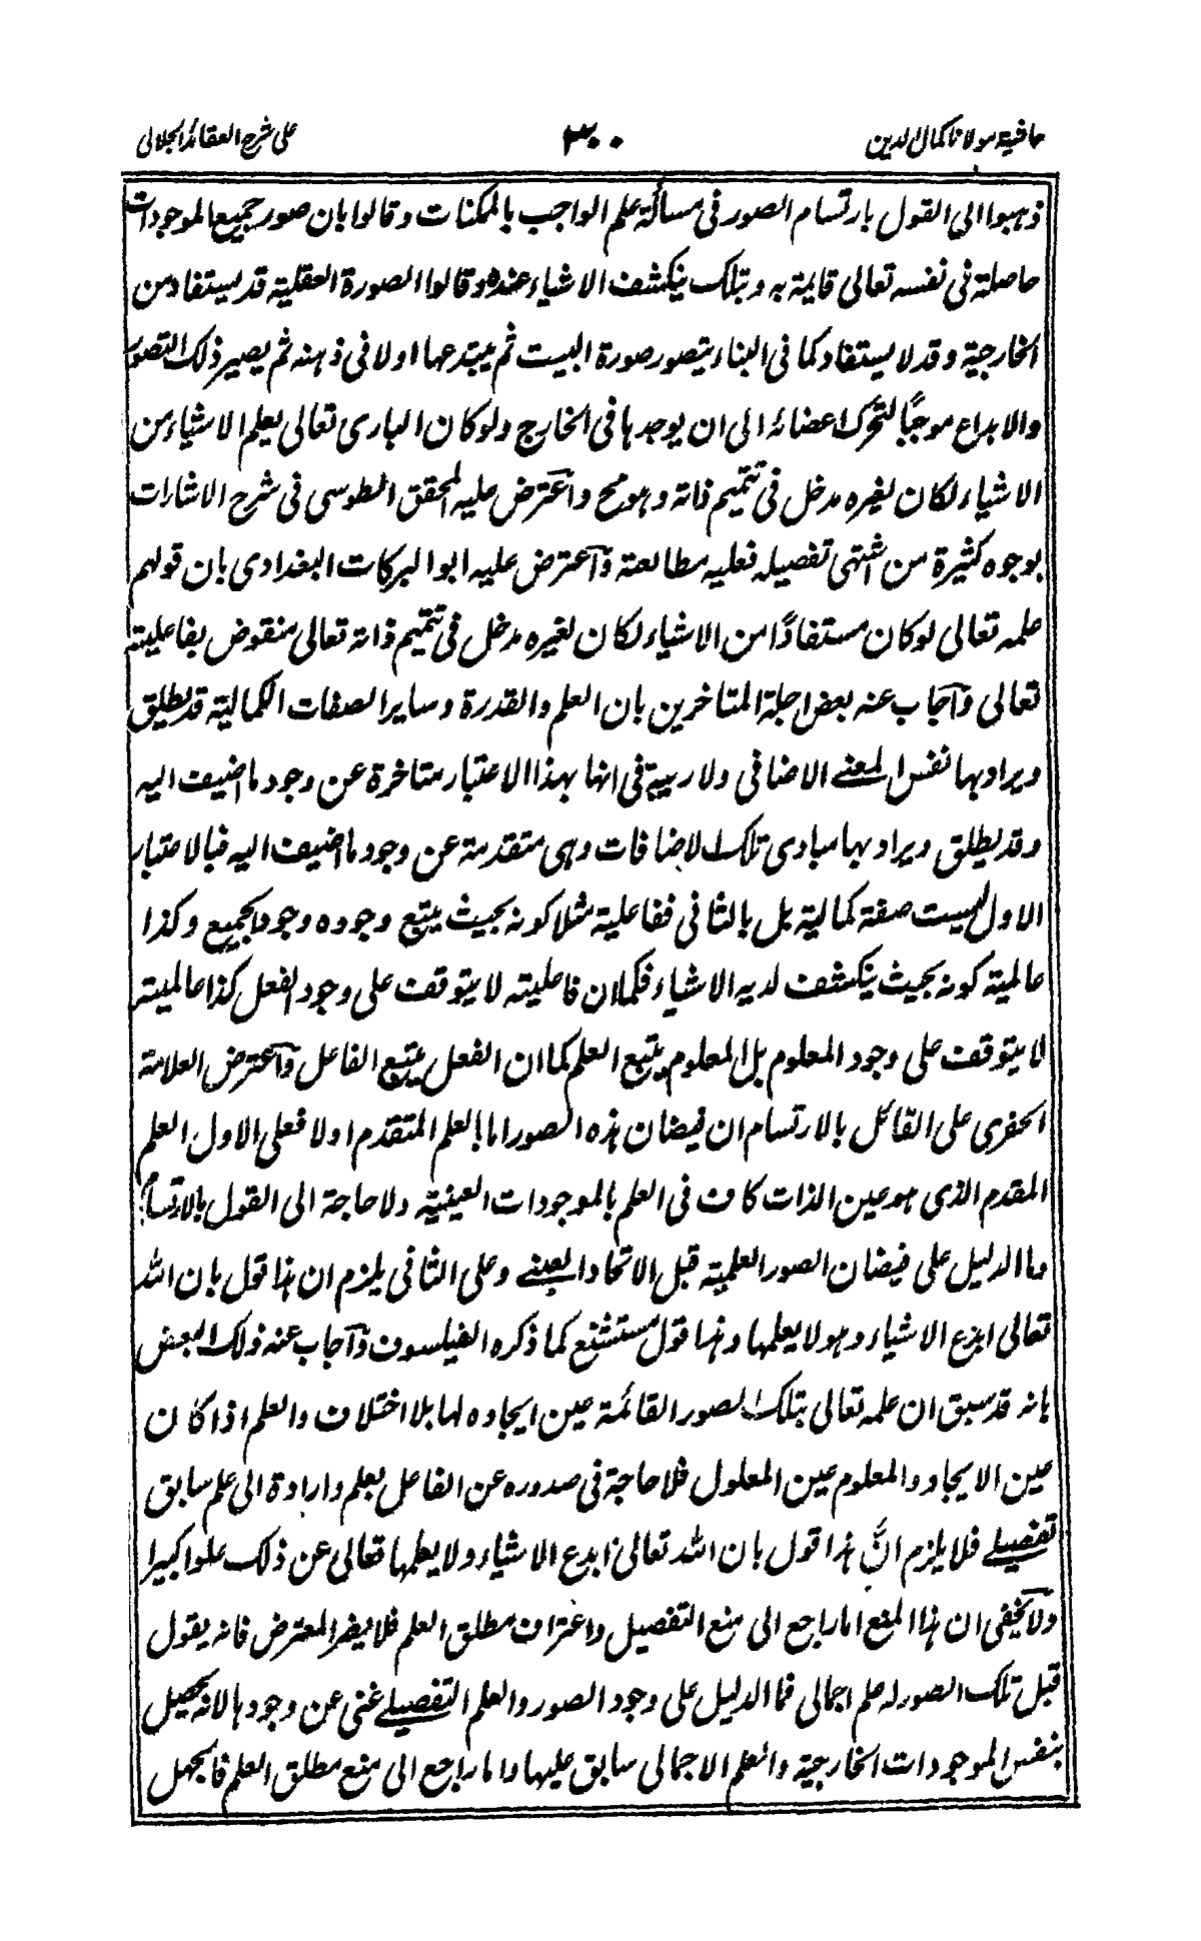 حاشیة مولانا کمال الدین ۳۰۰ علی شرح العقائد الجلالی
ذهبوا الی القول بارتسام الصور فی مسألة علم الواجب بالممکنات وقالوا بان صور جمیع الموجودات
حاصلة فی نفسه تعالی قایمة به وبتلک ینکشف الاشیاء عنده وقالوا الصورة العقلیة قد یستفاد من
الخارجیة وقد لا یستفاد کما فی البناء یتصور صورة البیت ثم یبتدعها اولا فی ذهنه ثم یصیر ذلک التصور
والابداع موجبًا لتحرک اعضائه الی ان یوجدها فی الخارج ولو کان الباری تعالی یعلم الاشیاء من
الاشیاء لکان لغیره مدخل فی تتمیم ذاته وهو مح واعترض علیه المحقق الطوسی فی شرح الاشارات
بوجوه کثیرة من اشتهی تفصیله فعلیه مطالعته واعترض علیه ابو البرکات البغدادی بان قولهم
علمه تعالی لو کان مستفادًا من الاشیاء لکان لغیره مدخل فی تتمیم ذاته تعالی منقوض بفاعلیته
تعالی واجاب عنه بعض اجلة المتاخرین بان العلم والقدرة وسایر الصفات الکمالیة قد یطلق
ویراد بها نفس المعنی الاضافی ولا ریبة فی انها بهذا الاعتبار متاخرة عن وجود ما اضیف الیه
وقد یطلق ویراد بها مبادی تلک الاضافات وهی متقدمة عن وجود ما اضیف الیه فبالاعتبار
الاول لیست صفة کمالیة بل بالثانی ففاعلیة مثلا کونه بحیث یتبع وجوده وجود الجمیع وکذا
عالمیة کونه بحیث ینکشف لدیه الاشیاء فکما ان فاعلیته لا یتوقف علی وجود الفعل کذا عالمیته
لا یتوقف علی وجود المعلوم بل المعلوم یتبع العلم کما ان الفعل یتبع الفاعل واعترض العلامة
الخفری علی القائل بالارتسام ان فیضان هذه الصور اما بالعلم المتقدم اولا فعلی الاول العلم
المقدم الذی هو عین الذات کاف فی العلم بالموجودات العینیة ولا حاجة الی القول بالارتسام
وما الدلیل علی فیضان الصور العلمیة قبل الاتحاد العینی وعلی الثانی یلزم ان هذا قول بان الله
تعالی ابدع الاشیاء وهو لا یعلمها وهذا قول مستشنع کما ذکره الفیلسوف واجاب عنه ذلک البعض
بانه قد سبق ان علمه تعالی بتلک الصور القائمة عین ایجاده لها بلا اختلاف والعلم اذا کان
عین الایجاد والمعلوم عین المعلول فلا حاجة فی صدوره عن الفاعل بعلم وارادة الی علم سابق
تفصیلی فلا یلزم انّ هذا قول بان الله تعالی ابدع الاشیاء ولا یعلمها تعالی عن ذلک علوا کبیرا
ولا یخفی ان هذا المنع اما راجع الی منع التفصیل واعتراف مطلق العلم فلا یضر المعترض فانه یقول
قبل تلک الصور له علم اجمالی فما الدلیل علی وجود الصور والعلم التفصیلی غنی عن وجودها لانه یحصل
بنفس الموجودات الخارجیة والعلم الاجمالی سابق علیها واما راجع الی منع مطلق العلم فالجهل